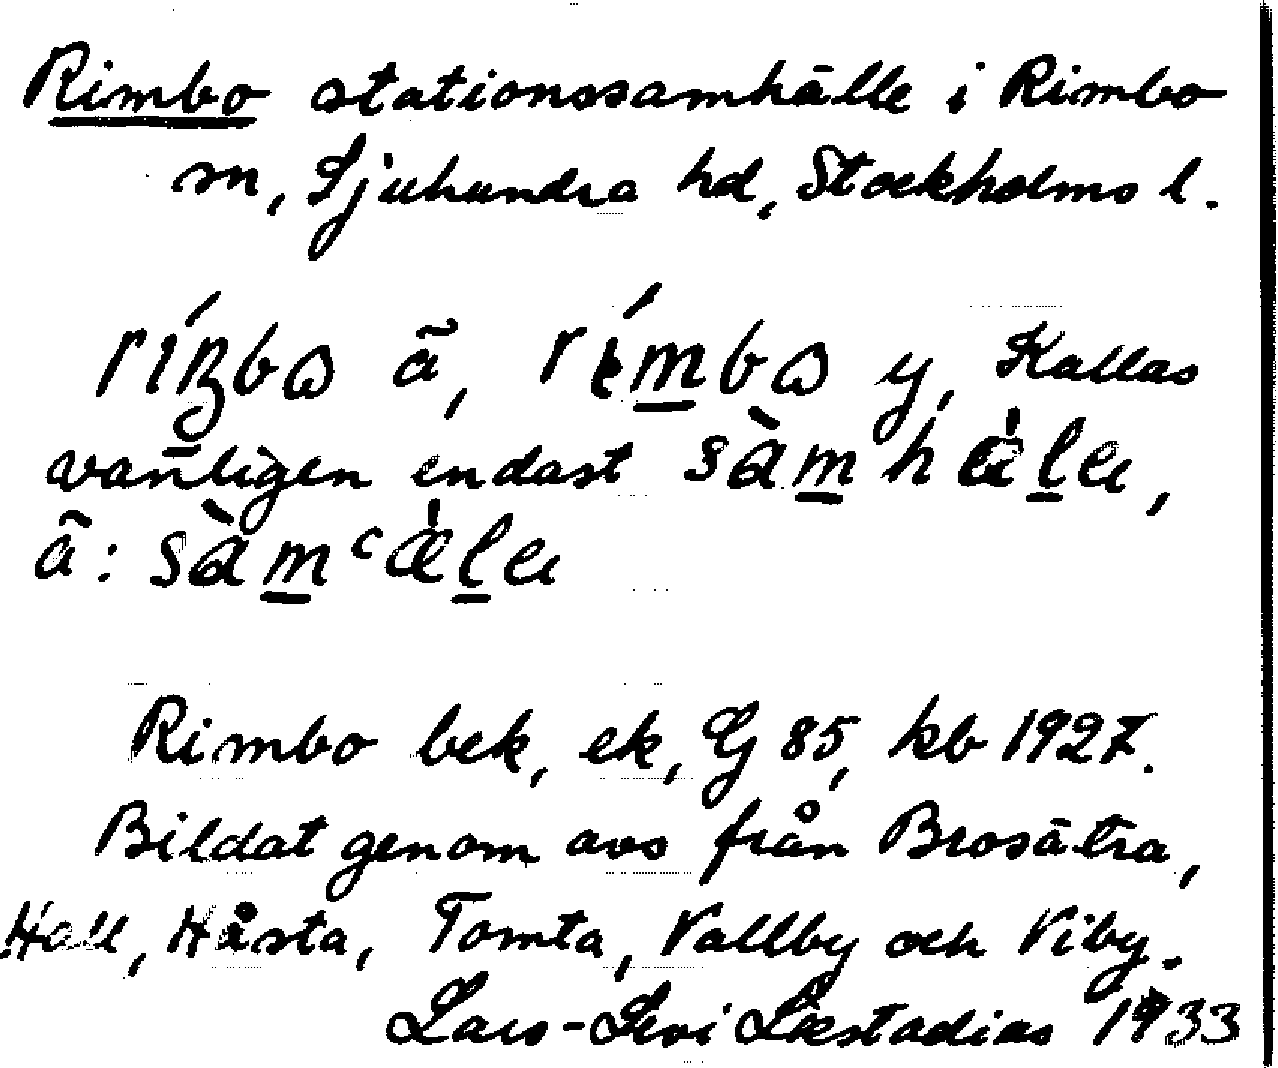 Rimbo stationssamhälle i Rimbo
sn, Sjuhundra hd, Stockholms l.
ã, y, Kallas
vanligen endast
ã:
Rimbo bek, ek, G 85, kb 1927.
Bildat genom avs från Brosätra,
Hall, Håsta, Tomta, Vallby och Viby.
Lars-Levi Læstadius 1933